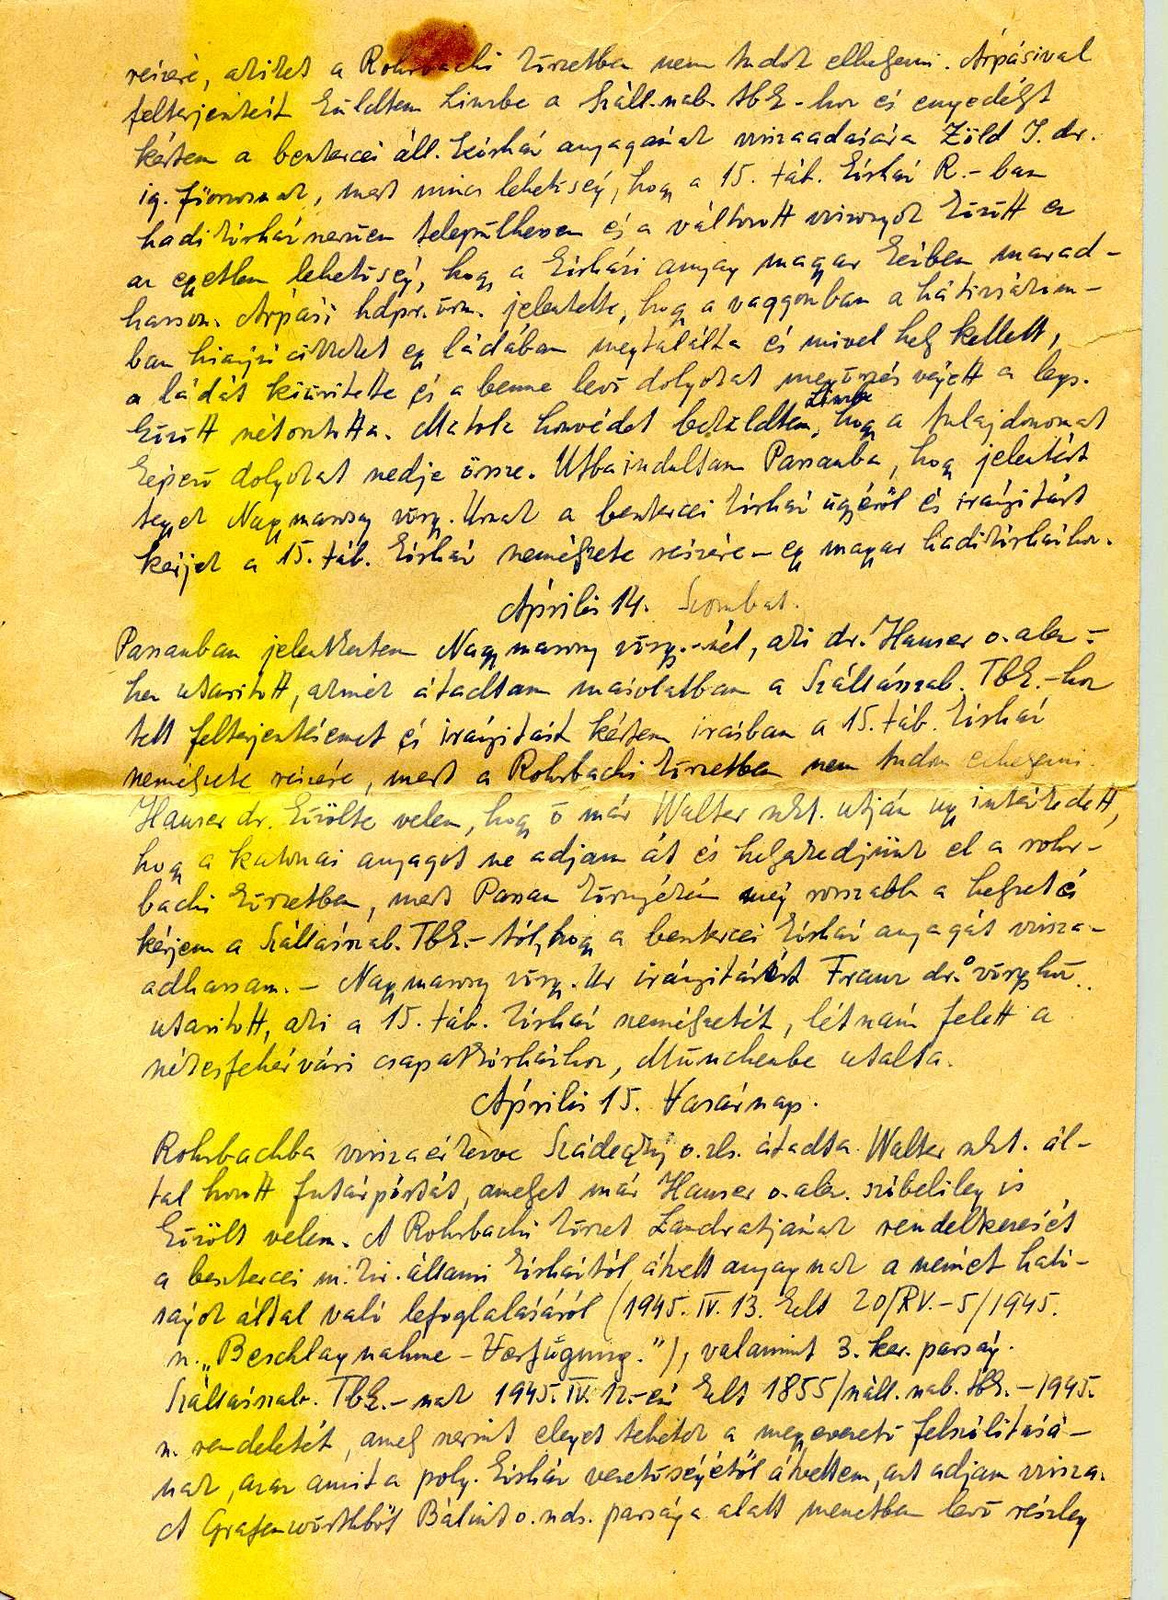 részére, akiket a Rohrbachi körzetben nem tudok elhelyezni. Árpásival
felterjesztést küldtem Linzbe a Száll.szab. tbk-hoz és engedélyt
kértem a besztercei áll. kórház anyagának visszaadására Zöld J. dr.
ig. főorvosnak, mert nincs lehetőség, hogy a 15. táb. kórház R.-ban
hadikórházszerűen települhessen és a változott viszonyok között ez
az egyetlen lehetőség, hogy a kórházi anyag magyar kézben marad-
hasson. Árpási hdpr. őrm. jelentette, hogy a vaggonban a hátizsákom-
ban hiányzó cikkeket egy ládában megtalálta és mivel hely kellett,
a ládát kiürítette és a benne levő dolgokat megőrzés végett a legs.
között szétosztotta. Matola honvédet beküldtem Linzbe, hogy a tulajdonomat
képező dolgokat szedje össze. Útba indultam Passauba, hogy jelentést
tegyek Nagymarosy vörgy. Úrnak a besztercei kórház ügyéről és irányítást
kérjek a 15. táb. kórház személyzete részére – egy magyar hadikórházhoz.
Április 14. Szombat.
Passauban jelentkeztem Nagymarosy vörgy.-nél, aki dr. Hauser o. alez-
hez utasított, akinek átadtam másolatban a Szállásszab. Tbk.-hoz
tett felterjesztésemet és irányítást kértem írásban a 15. táb. kórház
személyzete részére, mert a Rohrbachi körzetben nem tudom elhelyezni.
Hauser dr. közölte velem, hogy ő már Walter szkt. útján úgy intézkedett,
hogy a katonai anyagot ne adjam át és helyezkedjünk el a rohr-
bachi körzetben, mert Passau környékén még rosszabb a helyzet és
kérjem a Szállásszab. Tbk.-tól, hogy a besztercei kórház anyagát vissza-
adhassam. – Nagymarosy vörgy. Úr irányításért Franz dr. vörgyhöz
utasított, aki a 15. táb. kórház személyzetét, létszám felett a
székesfehérvári csapatkórházhoz, Münchenbe utalta.
Április 15. Vasárnap.
Rohrbachba visszaérkezve Szádeczky o. zls. átadta Walter szkt. ál-
tal hozott futárpóstát, amelyet már Hauser o. alez. szóbelileg is
közölt velem. A Rohrbachi körzet Landratjának rendelkezését
a besztercei m. kir. állami kórháztól átvett anyagnak a német ható-
ságok által való lefoglalásáról (1945. IV. 13. kelt 20/RV.-5/1945.
sz. „Beschlagnahme-Verfügung."), valamint 3. ker. pság.
Szállásszab. Tbk.-nak 1945. IV. 12.-én kelt 1855/száll.szab. tbk.-1945.
sz. rendeletét, amely szerint eleget tehetek a megevezető felszólításá-
nak, azaz amit a polg. kórház vezetőségétől átvettem, azt adjam vissza.
A Grafenwörthből Bálint o. szds. parsága alatt menetben levő részleg